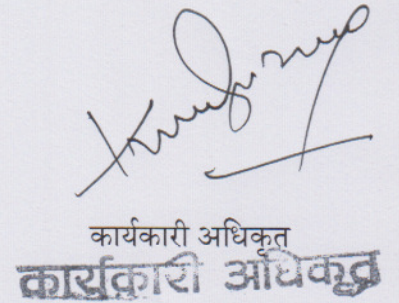 कार्यकारी अधिकृत
कार्यकारी अधिकृत